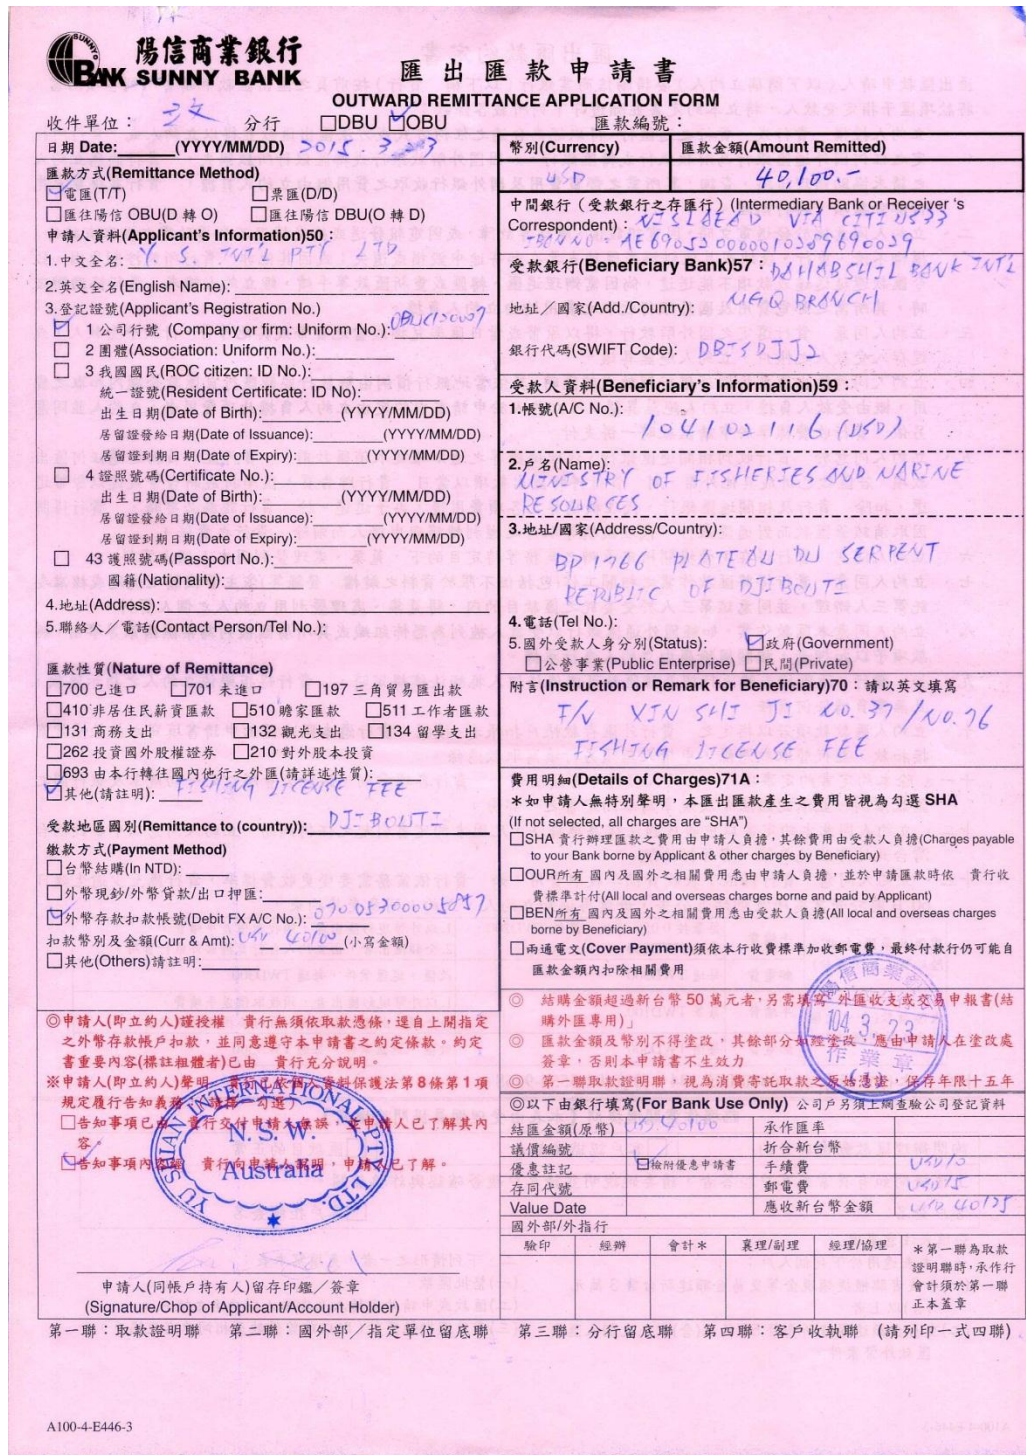 SUNNY BANK
陽信商業銀行
BANK SUNNY BANK
匯出匯款申請書
OUTWARD REMITTANCE APPLICATION FORM
收件單位： 分行 □DBU ☑OBU 匯款編號：
日期 Date: (YYYY/MM/DD) 2015.3.23
匯款方式(Remittance Method)
☑電匯(T/T) □票匯(D/D)
□匯往陽信 OBU(D 轉 O) □匯往陽信 DBU(O 轉 D)
申請人資料(Applicant's Information)50：
1.中文全名: Y. S. INT'L PTY LTD
2.英文全名(English Name):
3.登記證號(Applicant's Registration No.)
☑ 1 公司行號 (Company or firm: Uniform No.): OBU120007
□ 2 團體(Association: Uniform No.):
□ 3 我國國民(ROC citizen: ID No.):
統一證號(Resident Certificate: ID No):
出生日期(Date of Birth): (YYYY/MM/DD)
居留證發給日期(Date of Issuance): (YYYY/MM/DD)
居留證到期日期(Date of Expiry): (YYYY/MM/DD)
□ 4 證照號碼(Certificate No.):
出生日期(Date of Birth): (YYYY/MM/DD)
居留證發給日期(Date of Issuance): (YYYY/MM/DD)
居留證到期日期(Date of Expiry): (YYYY/MM/DD)
□ 43 護照號碼(Passport No.):
國籍(Nationality):
4.地址(Address):
5.聯絡人／電話(Contact Person/Tel No.):
匯款性質(Nature of Remittance)
□700 已進口 □701 未進口 □197 三角貿易匯出款
□410 非居住民薪資匯款 □510 贍家匯款 □511 工作者匯款
□131 商務支出 □132 觀光支出 □134 留學支出
□262 投資國外股權證券 □210 對外股本投資
□693 由本行轉往國內他行之外匯(請詳述性質):
☑其他(請註明): FISHING LICENSE FEE
受款地區國別(Remittance to (country)): DJIBOUTI
繳款方式(Payment Method)
□台幣結購(In NTD):
□外幣現鈔/外幣貸款/出口押匯:
☑外幣存款扣款帳號(Debit FX A/C No.): 07005300005857
扣款幣別及金額(Curr & Amt): USD 40100 (小寫金額)
□其他(Others)請註明:
◎申請人(即立約人)謹授權 貴行無須依取款憑條，逕自上開指定
之外幣存款帳戶扣款，並同意遵守本申請書之約定條款。約定
書重要內容(標註粗體者)已由 貴行充分說明。
※申請人(即立約人)聲明 貴行已依個人資料保護法第8條第1項
規定履行告知義務
□告知事項已由 貴行交付申請人無誤，並申請人已了解其內
容。
☑告知事項內容經 貴行向申請人說明，申請人已了解。
YU SHIAN INTERNATIONAL PTY LTD.
N. S. W.
Australia
申請人(同帳戶持有人)留存印鑑／簽章
(Signature/Chop of Applicant/Account Holder)
幣別(Currency) 匯款金額(Amount Remitted)
USD 40,100.-
中間銀行（受款銀行之存匯行）(Intermediary Bank or Receiver 's
Correspondent): NISLAEAD VIA CITIUS33
IBAN NO: AE690520000010389690029
受款銀行(Beneficiary Bank)57： DAHABSHIL BANK INT'L
地址／國家(Add./Country): NAQ BRANCH
銀行代碼(SWIFT Code): DBISDJJ2
受款人資料(Beneficiary's Information)59：
1.帳號(A/C No.): 104102116 (USD)
2.戶名(Name):
MINISTRY OF FISHERIES AND MARINE
RESOURCES
3.地址/國家(Address/Country):
BP 1766 PLATEAU DU SERPENT
REPUBLIC OF DJIBOUTI
4.電話(Tel No.):
5.國外受款人身分別(Status): ☑政府(Government)
□公營事業(Public Enterprise) □民間(Private)
附言(Instruction or Remark for Beneficiary)70：請以英文填寫
F/V XIN SHI JI NO.37 / NO.76
FISHING LICENSE FEE
費用明細(Details of Charges)71A：
＊如申請人無特別聲明，本匯出匯款產生之費用皆視為勾選 SHA
(If not selected, all charges are "SHA")
□SHA 貴行辦理匯款之費用由申請人負擔，其餘費用由受款人負擔(Charges payable
to your Bank borne by Applicant & other charges by Beneficiary)
□OUR所有 國內及國外之相關費用悉由申請人負擔，並於申請匯款時依 貴行收
費標準計付(All local and overseas charges borne and paid by Applicant)
□BEN所有 國內及國外之相關費用悉由受款人負擔(All local and overseas charges
borne by Beneficiary)
□兩通電文(Cover Payment)須依本行收費標準加收郵電費，最終付款行仍可能自
匯款金額內扣除相關費用
◎ 結購金額超過新台幣 50 萬元者，另需填寫「外匯收支或交易申報書(結
購外匯專用)」
◎ 匯款金額及幣別不得塗改，其餘部分如經塗改，應由申請人在塗改處
簽章，否則本申請書不生效力
◎ 第一聯取款證明聯，視為消費寄託取款之原始憑證，保存年限十五年
陽信商業銀行
104.3.23
作業章
(1)
◎以下由銀行填寫(For Bank Use Only) 公司戶另須上網查驗公司登記資料
結匯金額(原幣) USD 40100 承作匯率
議價編號 折合新台幣
優惠註記 ☑檢附優惠申請書 手續費 USD10
存同代號 郵電費 USD15
Value Date 應收新台幣金額 USD 40125
國外部/外指行
驗印 經辦 會計＊ 襄理/副理 經理/協理
＊第一聯為取款
證明聯時，承作行
會計須於第一聯
正本蓋章
第一聯：取款證明聯 第二聯：國外部／指定單位留底聯 第三聯：分行留底聯 第四聯：客戶收執聯 (請列印一式四聯)
A100-4-E446-3